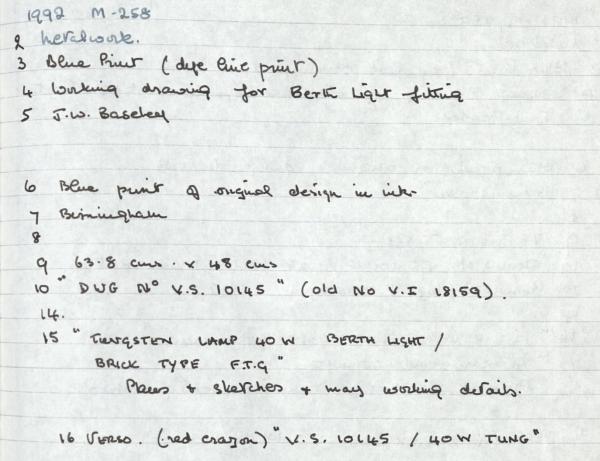 1992 M-258
2 Metalwork.
3 Blue Print (dye line print)
4 Working drawing for Berth Light fitting
5 J.W. Baseley
6 Blue print of original design in ink.
7 Birmingham
8
9 63.8 cms. x 48 cms
10 "DWG No V.S. 10145" (old No V.I 18159).
14.
15 "TUNGSTEN LAMP 40W BERTH LIGHT /
BRICK TYPE F.T.G"
Plans + sketches + may working details.
16 VERSO. (red crayon) "V.S. 10145 / 40W TUNG"